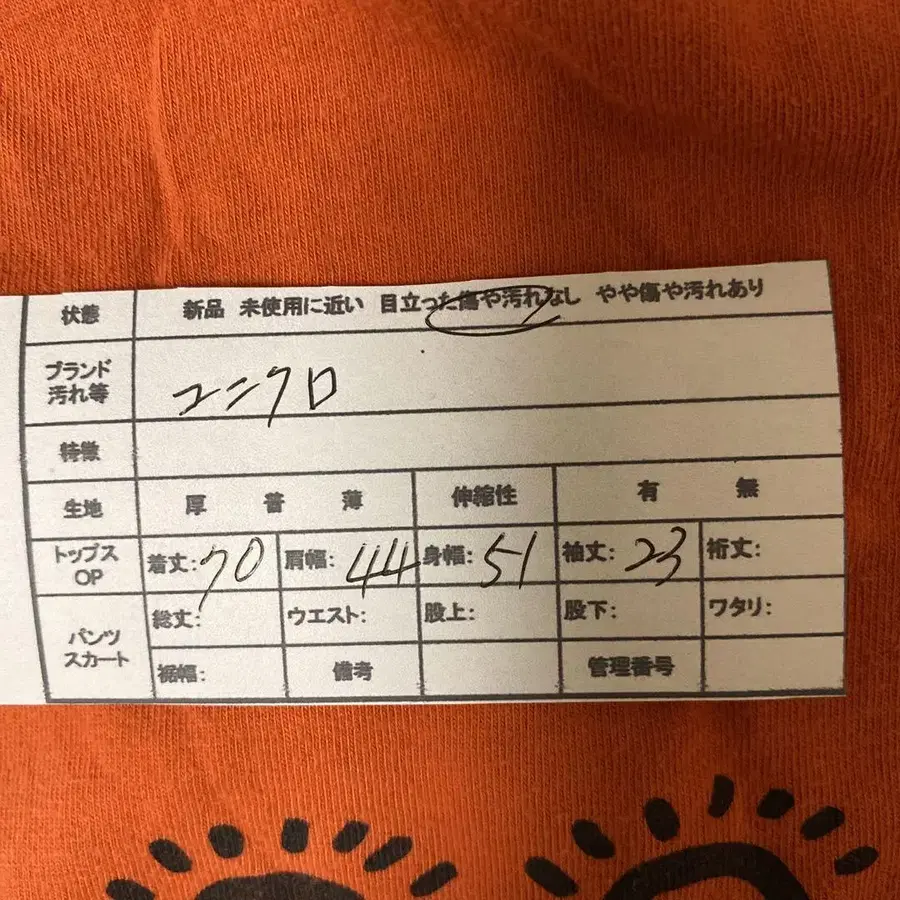 状態 新品 未使用に近い 目立った傷や汚れなし やや傷や汚れあり
ブランド
汚れ等 ユニクロ
特徴
生地 厚 普 薄 伸縮性 有 無
トップス
OP 着丈:70 肩幅:44 身幅:51 袖丈:23 裄丈:
パンツ
スカート 総丈: ウエスト: 股上: 股下: ワタリ:
裾幅: 備考 管理番号